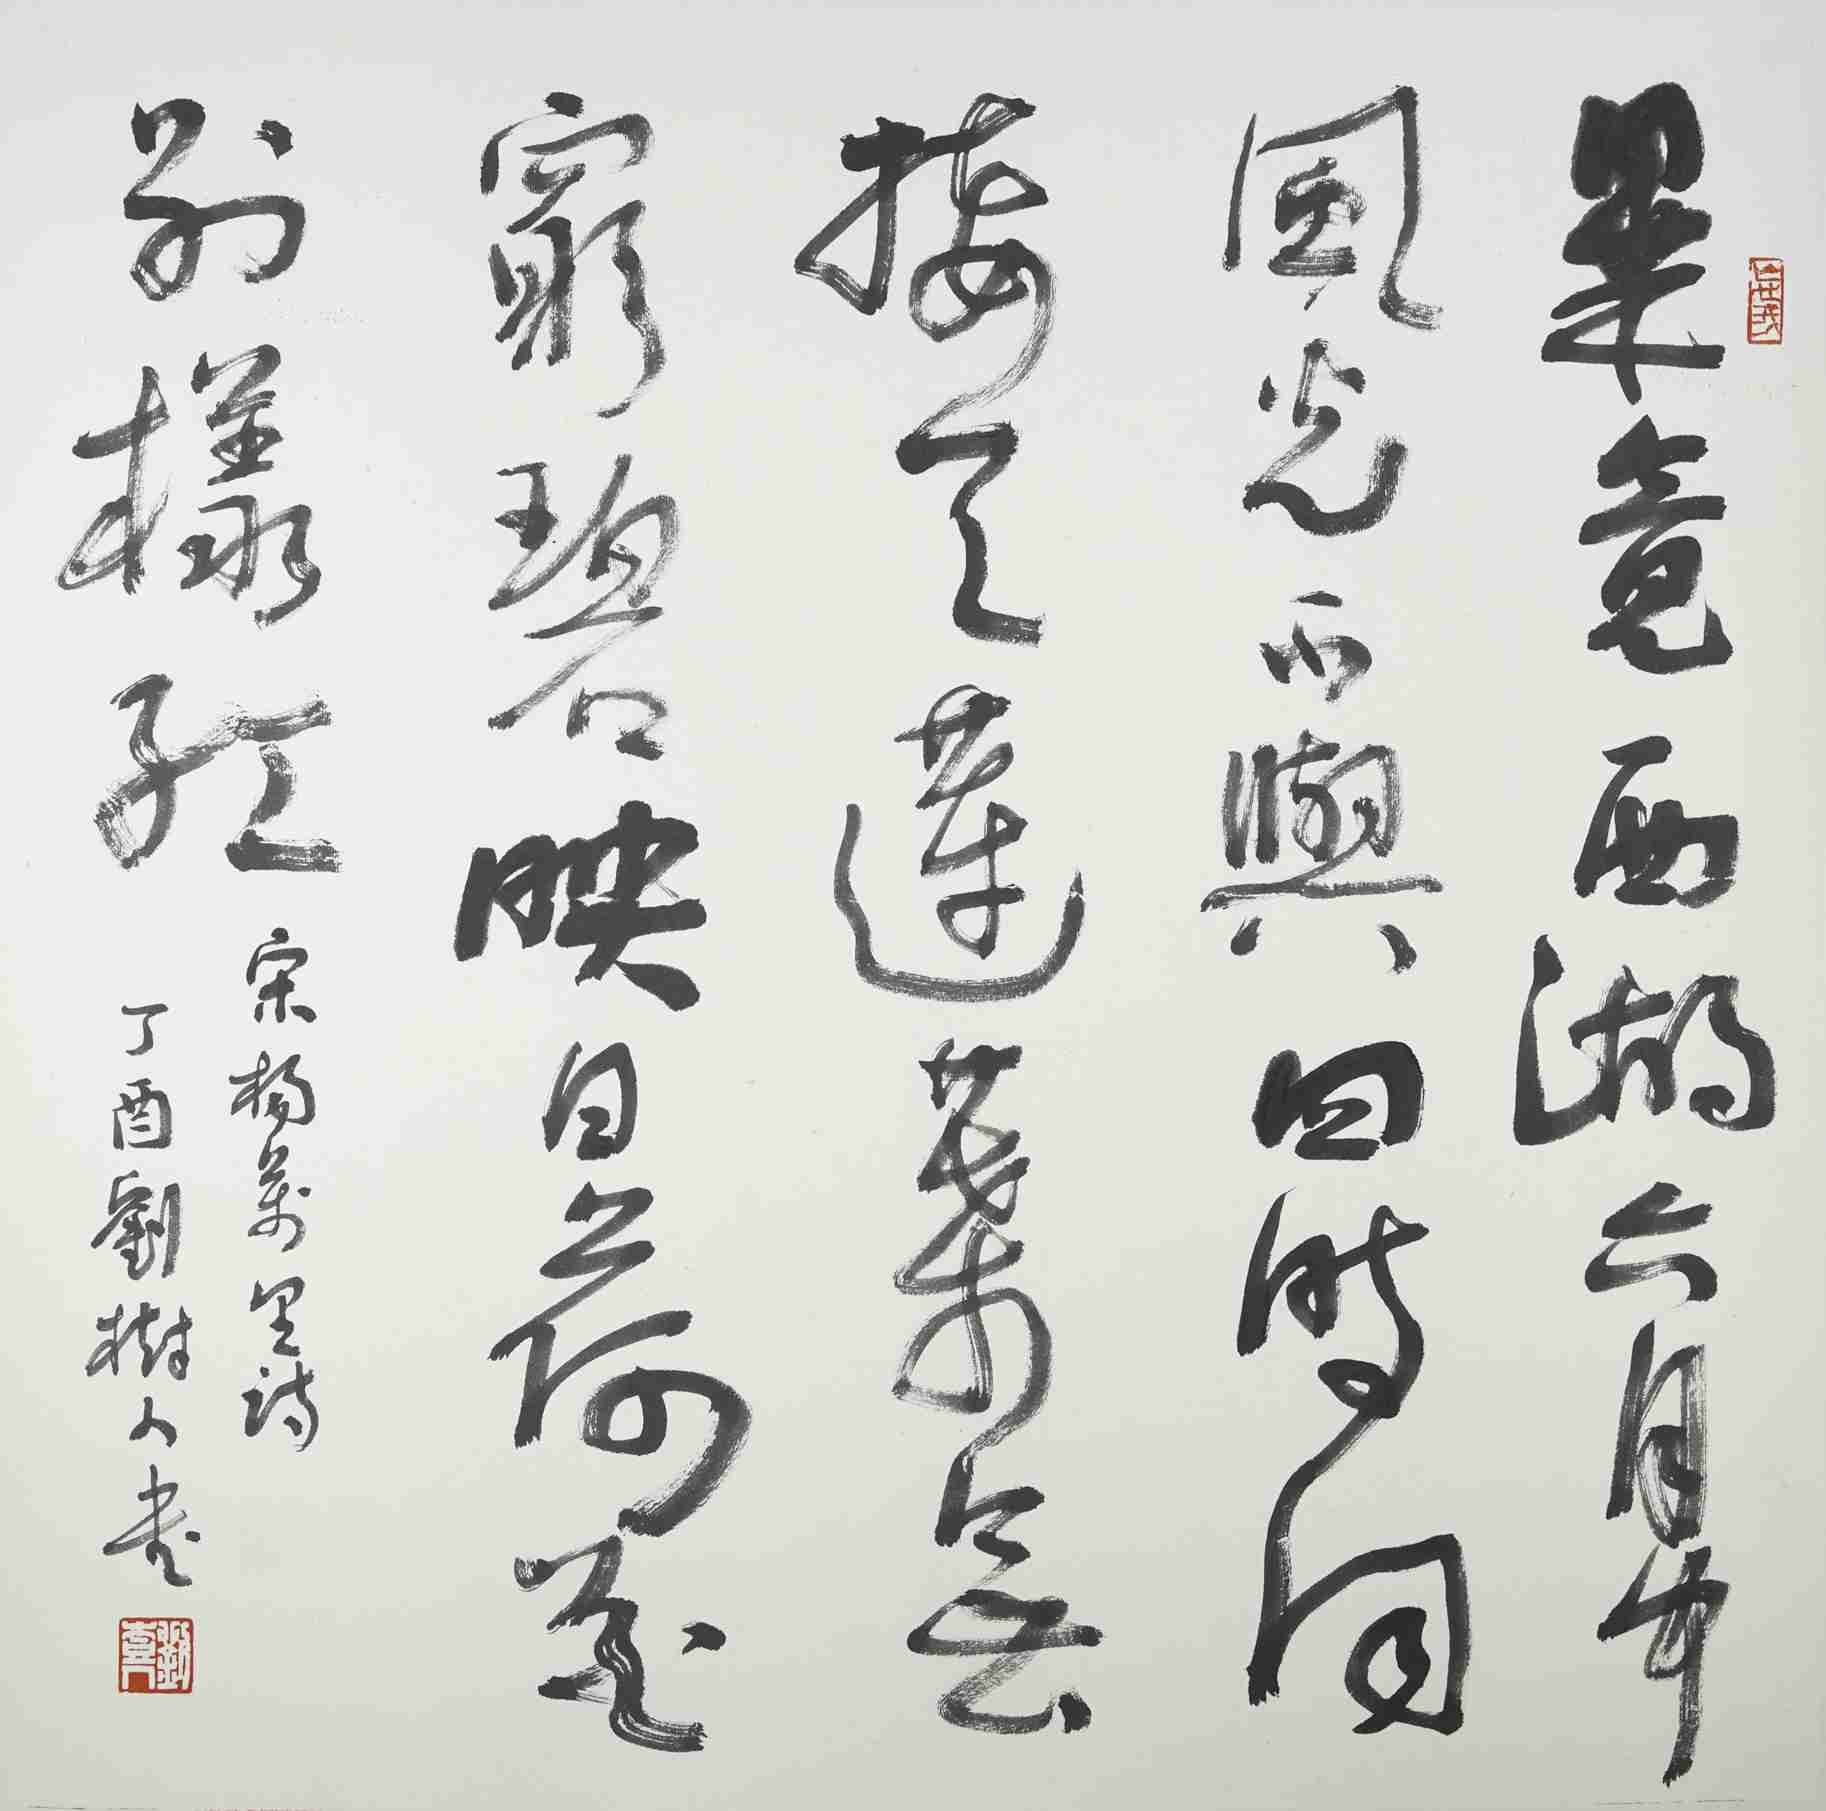 畢竟西湖六月中
風光不與四時同
接天蓮葉無
窮碧映日荷花
別樣紅
宋楊萬里詩
丁酉劉樹人書